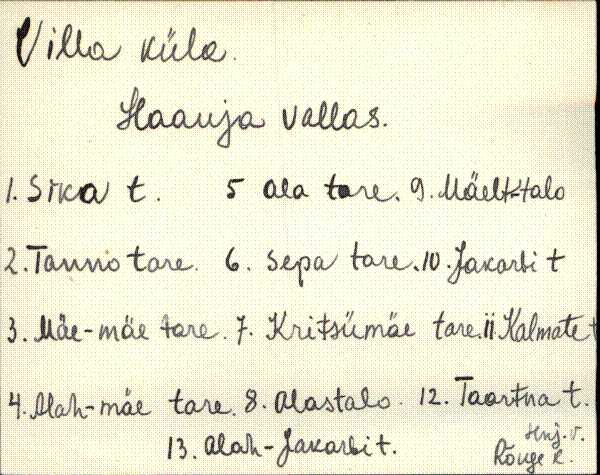 Villa küla.
Haanja vallas.
1. Sika t. 5 Ala tare. 9. Mäelt-talo
2. Tanno tare. 6. Sepa tare. 10. Jakarbi t
3. Mäe-mäe tare. 7. Kritsümäe tare. 11 Kalmate t
4. Alah-mäe tare. 8. Alastalo. 12. Taartna t.
13. Alah-Jakarbi t.
Hnj. v.
Rõuge k.